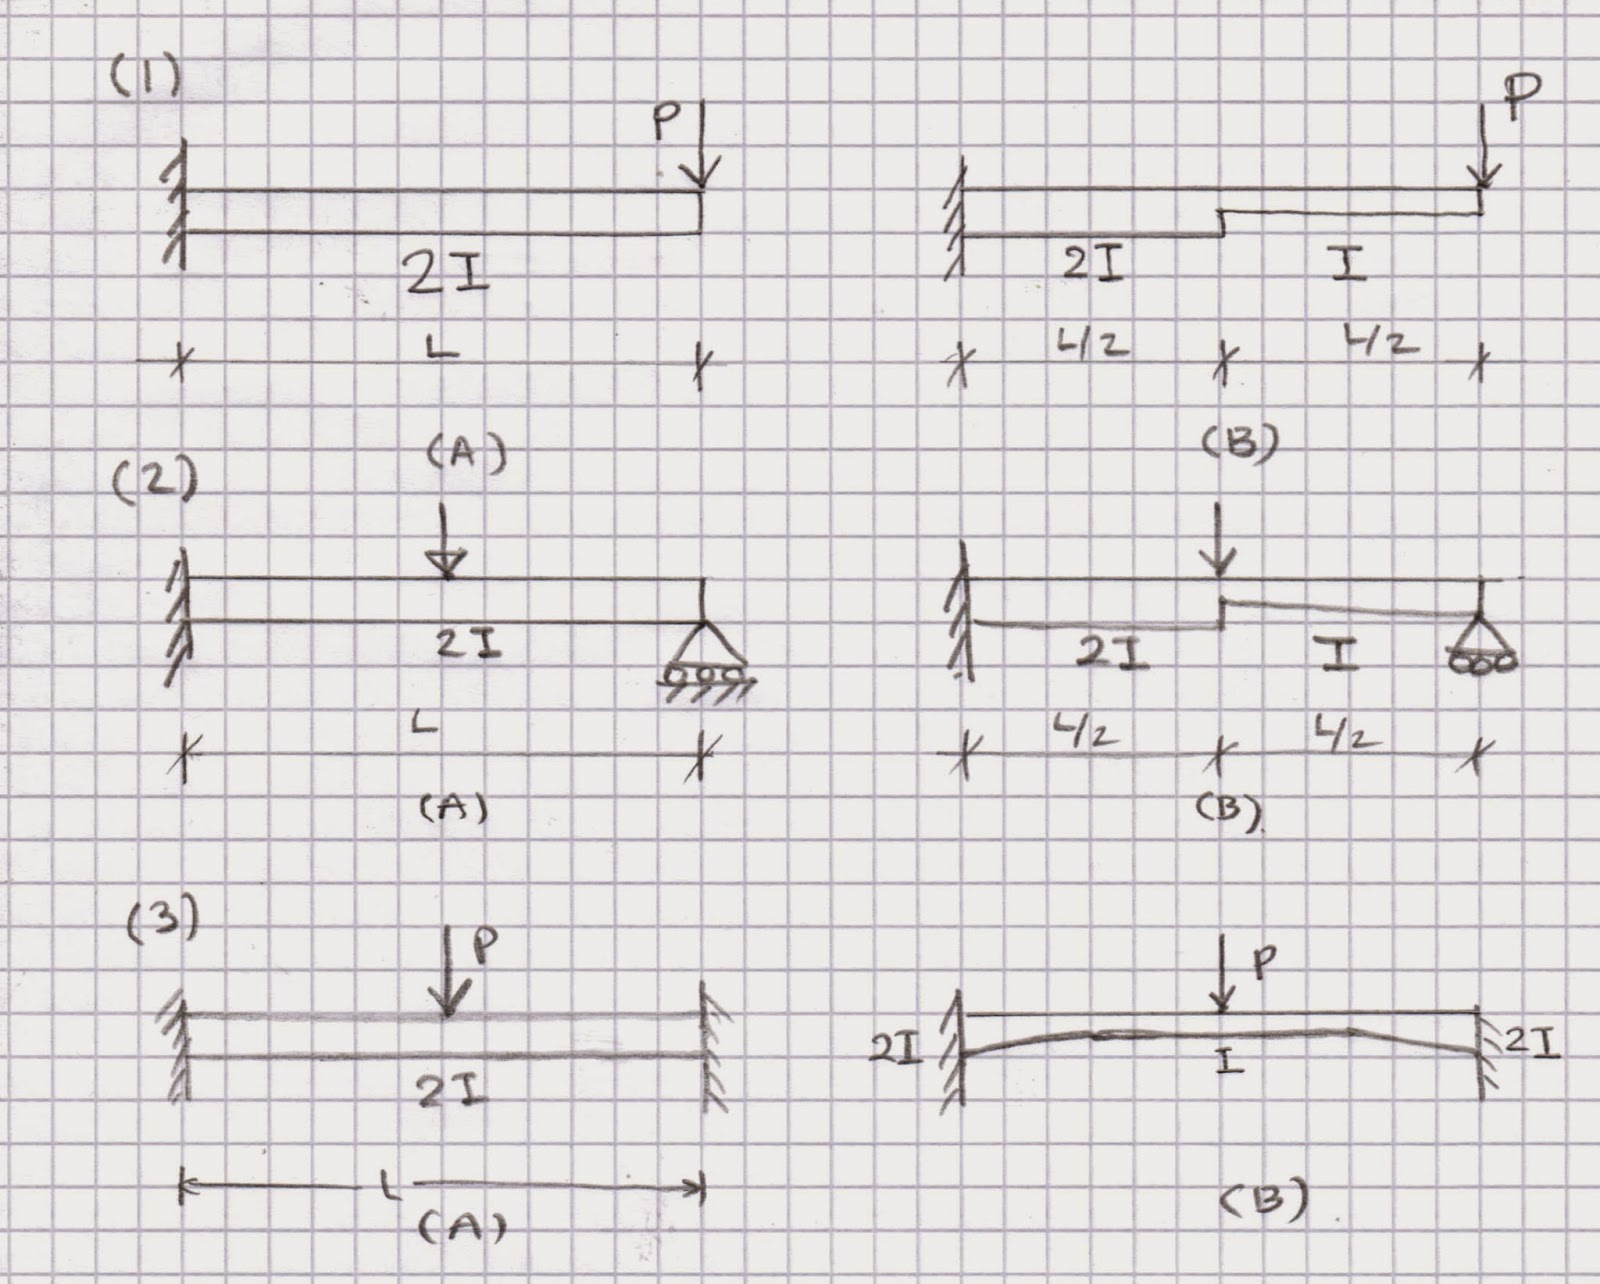 (1)
P P
2I 2I I
L L/2 L/2
(A) (B)
(2)
2I 2I I
L L/2 L/2
(A) (B)
(3)
P P
2I 2I I 2I
L
(A) (B)